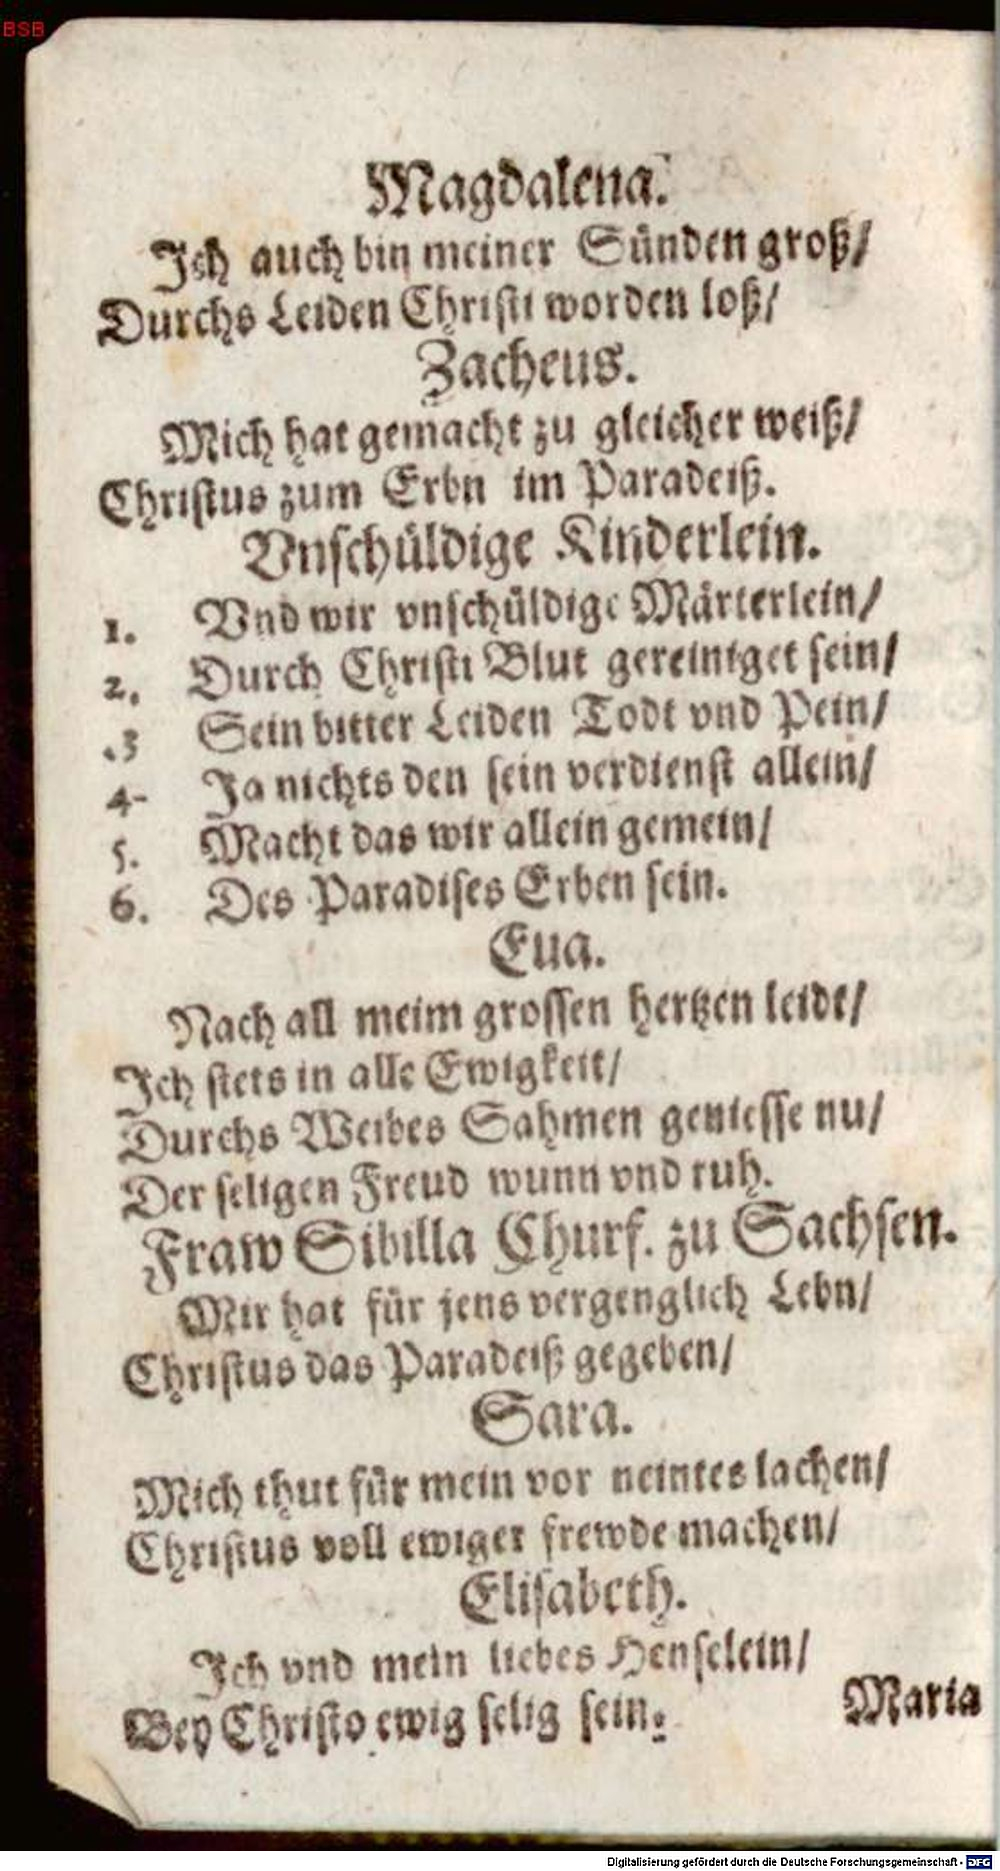 BSB
Magdalena.
Ich auch bin meiner Sünden groß/
Durchs Leiden Christi worden loß/
Zacheus.
Mich hat gemacht zu gleicher weiß/
Christus zum Erbn im Paradeiß.
Vnschüldige Kinderlein.
1. Vnd wir vnschüldige Märterlein/
2. Durch Christi Blut gereiniget sein/
.3 Sein bitter Leiden Todt vnd Pein/
4- Ja nichts den sein verdienst allein/
5. Macht das wir allein gemein/
6. Des Paradises Erben sein.
Eua.
Nach all meim grossen hertzen leidt/
Ich stets in alle Ewigkeit/
Durchs Weibes Sahmen geniesse nu/
Der seligen Freud wunn vnd ruh.
Fraw Sibilla Churf. zu Sachsen.
Mir hat für jens vergenglich Lebn/
Christus das Paradeiß gegeben/
Sara.
Mich thut für mein vor neintes lachen/
Christus voll ewiger frewde machen/
Elisabeth.
Ich vnd mein liebes Henselein/
Bey Christo ewig selig sein.
Maria
Digitalisierung gefördert durch die Deutsche Forschungsgemeinschaft - DFG